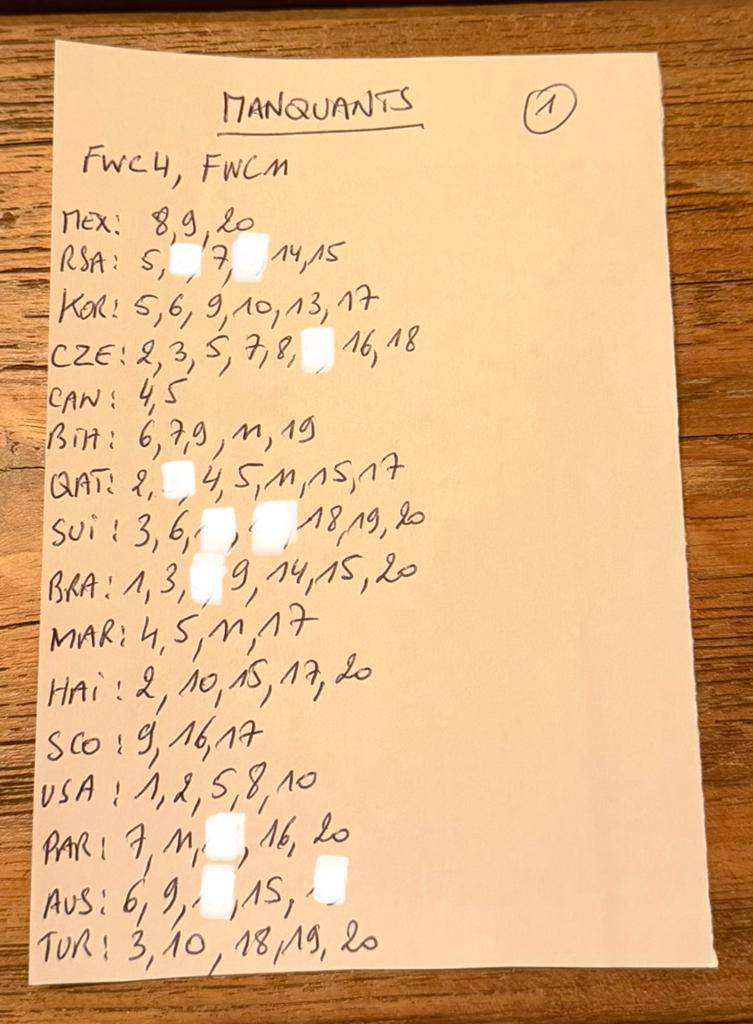 MANQUANTS 1
FWC4, FWC11
MEX: 8, 9, 20
RSA: 5, 7, 14, 15
KOR: 5, 6, 9, 10, 13, 17
CZE: 2, 3, 5, 7, 8, 16, 18
CAN: 4, 5
BIH: 6, 7, 9, 11, 19
QAT: 2, 4, 5, 11, 15, 17
SUi: 3, 6, 18, 19, 20
BRA: 1, 3, 9, 14, 15, 20
MAR: 4, 5, 11, 17
HAi: 2, 10, 15, 17, 20
SCO: 9, 16, 17
USA: 1, 2, 5, 8, 10
PAR: 7, 11, 16, 20
AUS: 6, 9, 15,
TUR: 3, 10, 18, 19, 20